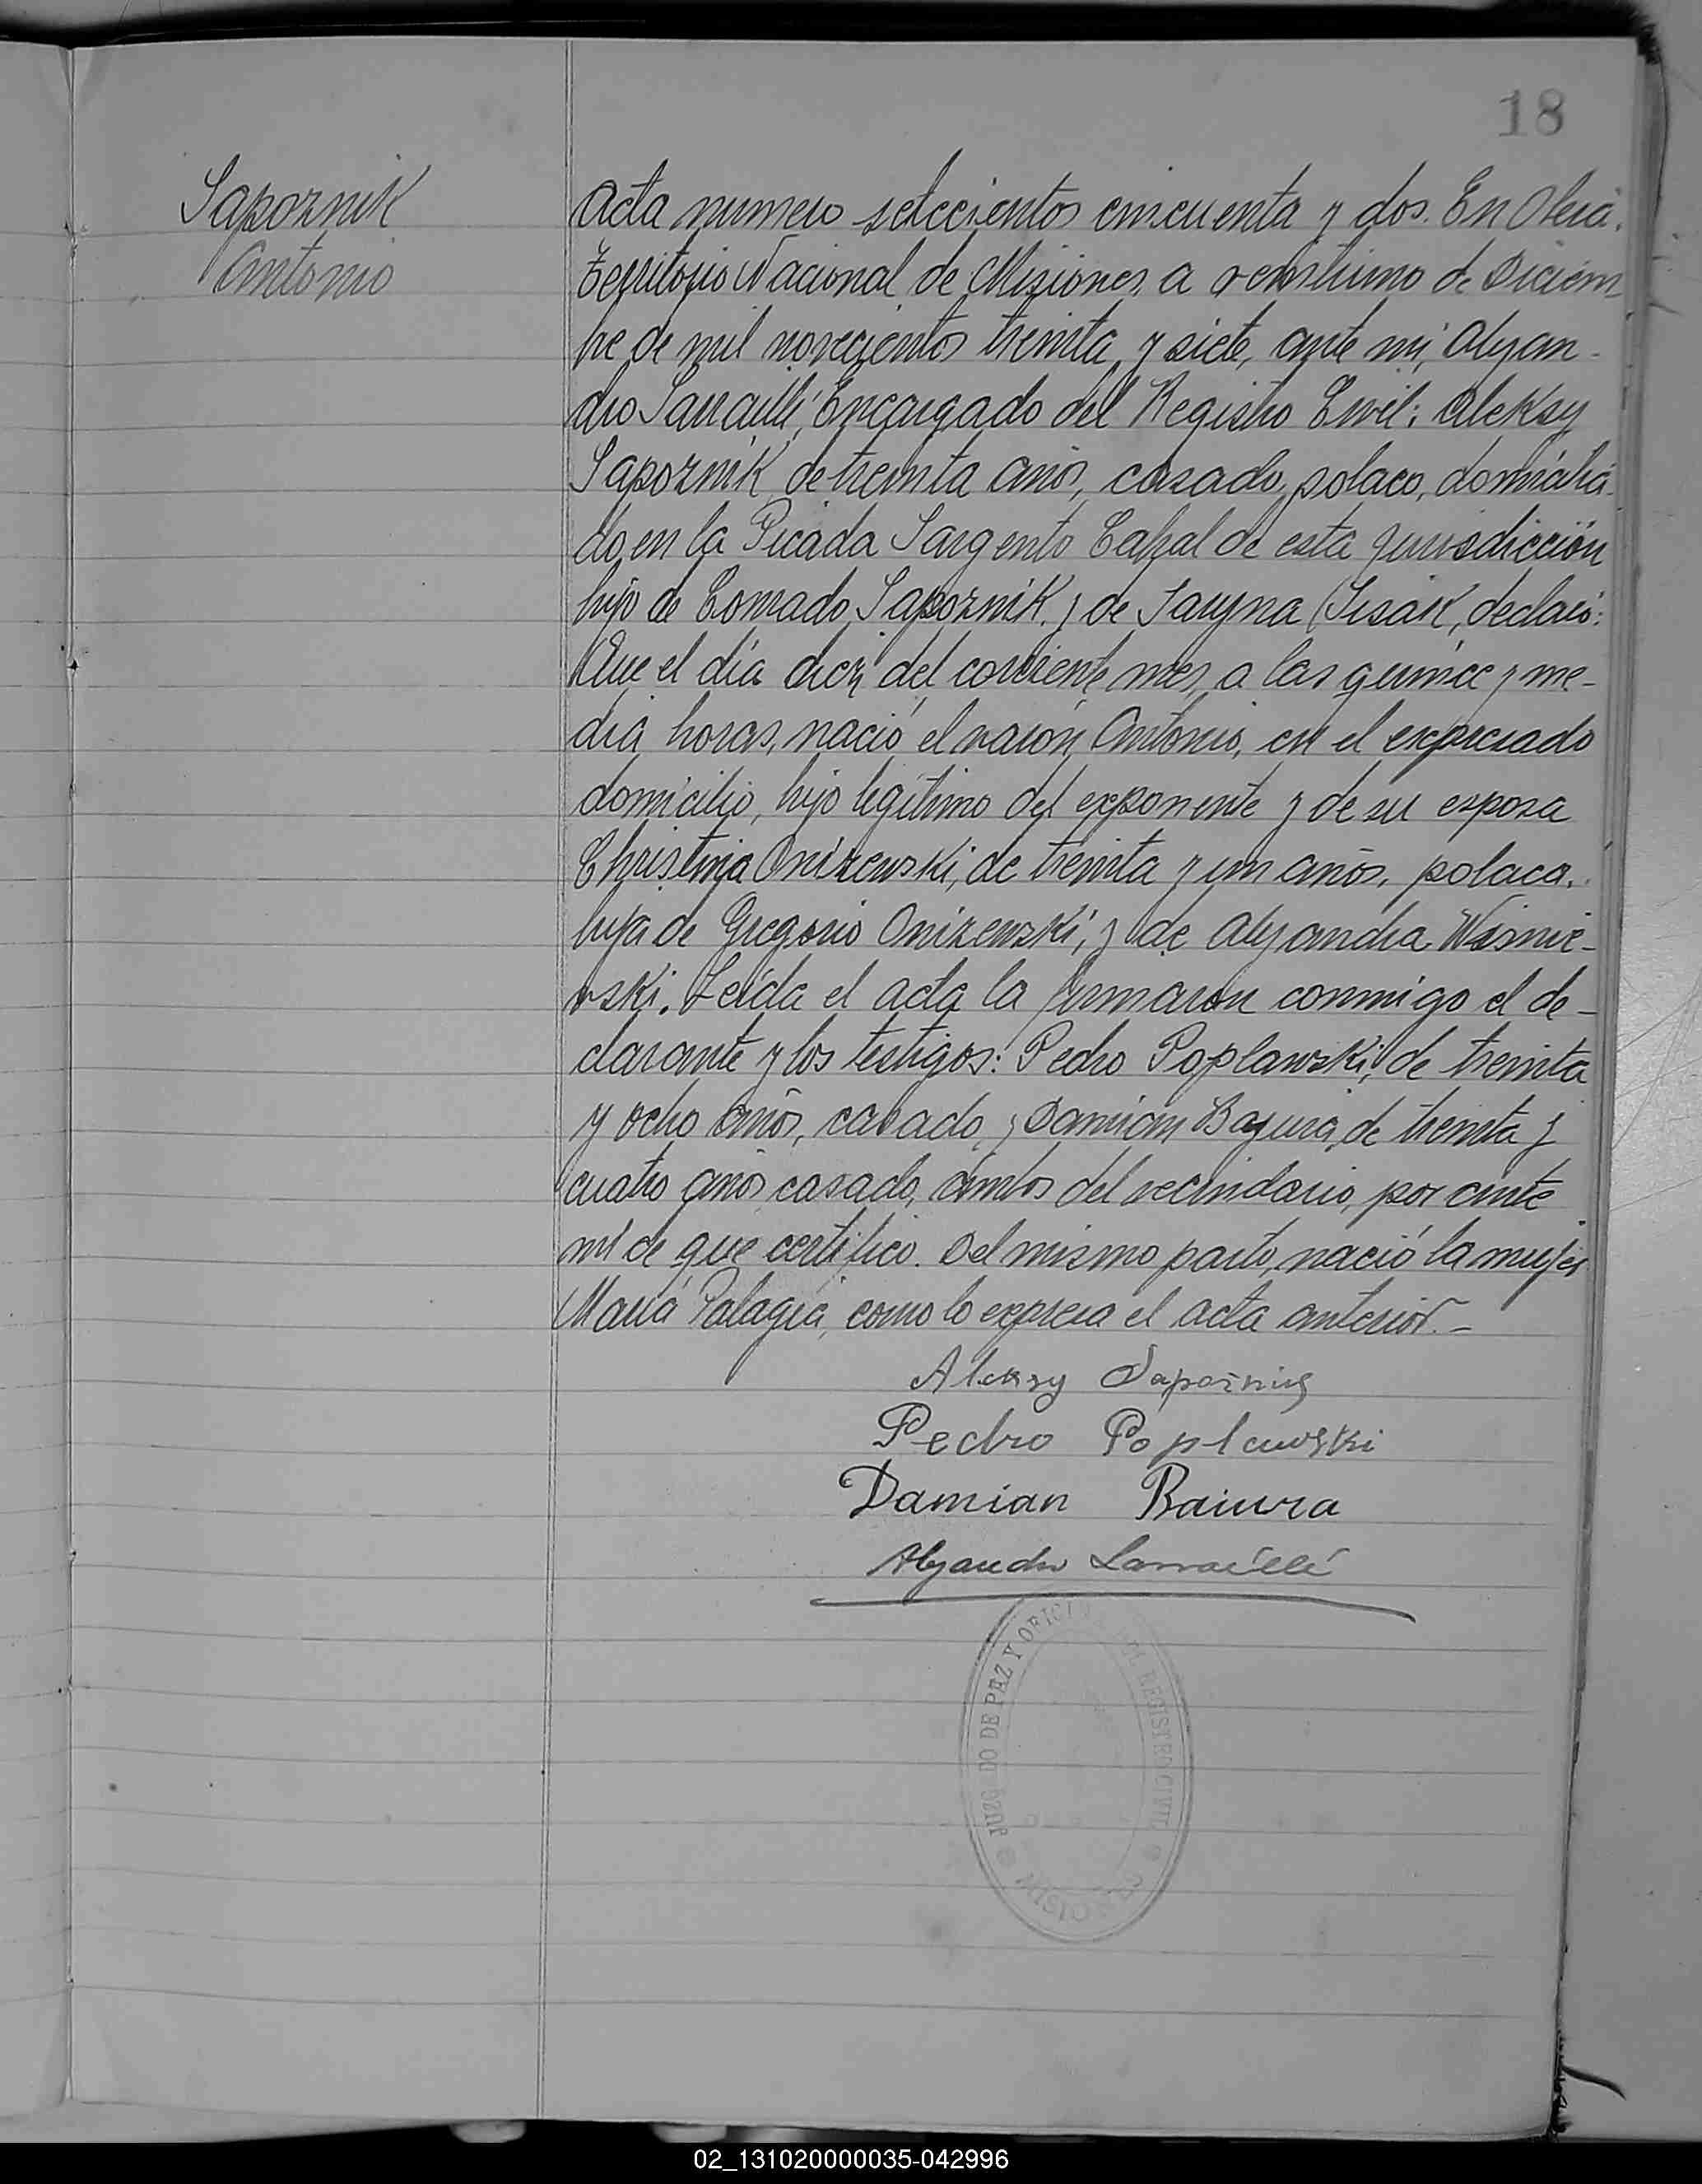 18
Sapoznik
Antonio
Acta numero setecientos cincuenta y dos. En Oberá,
Territorio Nacional de Misiones, a de Diciem
bre de mil novecientos treinta y siete, ante mi, Alejan-
dro Larraillé, Encargado del Registro Civil: Aleksy
Sapoznik, de treinta años, casado, polaco, domicilia-
do en la Picada Sargento Cabral de esta jurisdicción
hijo de Conrado Sapoznik, y de Jaryna Jisak, declaró:
Que el día diez del corriente mes, a las quince y me-
dia horas, nació el varón Antonio, en el expresado
domicilio, hijo legítimo del exponente y de su esposa
Christina Onizewski, de treinta y un años, polaca,
hija de Gregorio Onizewski, y de Alejandra Wisnie-
wski. Leída el acta la firmaron conmigo el de-
clarante y los testigos: Pedro Poplawski, de treinta
y ocho años, casado, y Damian Bajura, de treinta y
cuatro años, casado, ambos del vecindario, por ante
mí de que certifico. Del mismo parto, nació la mujer
María Palagia, como lo expresa el acta anterior.-
Aleksy
Pedro Poplawski
Damian Baiura
Alejandro Larraillé
JUZGADO DE PAZ Y OFICINA DEL REGISTRO CIVIL
MISIONES
02_131020000035-042996